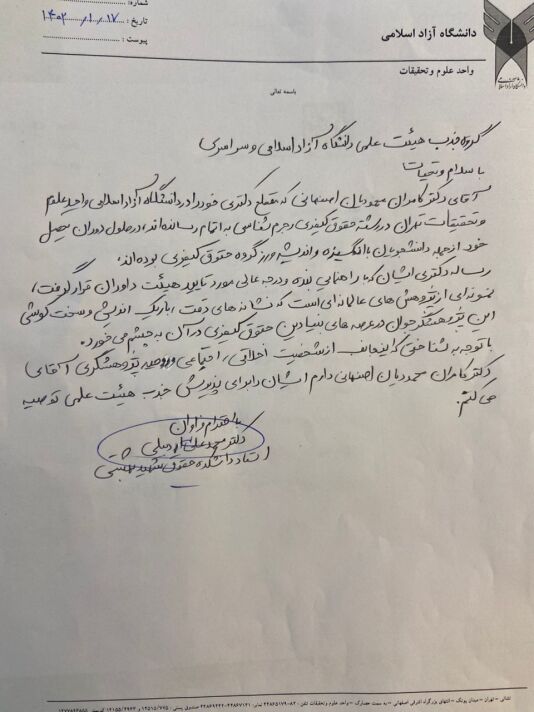 شماره: ....................
تاریخ : ۱۴۰۲/۱۰/۱۷
پیوست : ....................
دانشگاه آزاد اسلامی
واحد علوم و تحقیقات
باسمه تعالی
گروه جذب هیئت علمی دانشگاه آزاد اسلامی و سراسری
با سلام و تحیات
آقای دکتر کامران محمودیان اصفهانی که مقطع دکتری خود را در دانشگاه آزاد اسلامی واحد علوم
و تحقیقات تهران در رشته حقوق کیفری و جرم شناسی به اتمام رسانده‌اند، در طول دوران تحصیل
خود از جمله دانشجویان با انگیزه و اندیشه ورز گروه حقوق کیفری بوده‌اند.
رساله دکتری ایشان که با راهنمایی بنده و درجه عالی مورد تایید هیئت داوران قرار گرفت،
نمونه‌ای از پژوهش های عالمانه‌ای است که نشانه های دقت، باریک اندیشی و سخت کوشی
این پژوهشگر جوان در عرصه های بنیادین حقوق کیفری در آن به چشم می خورد.
با توجه به شناختی که اینجانب از شخصیت اخلاقی، اجتماعی و روحیه پژوهشگری آقای
دکتر کامران محمودیان اصفهانی دارم ایشان را برای پذیرش جذب هیئت علمی توصیه
می کنم.
با احترام فراوان
دکتر محمد علی اردبیلی
استاد دانشکده حقوق شهید بهشتی
نشانی : تهران - میدان پونک - انتهای بزرگراه اشرفی اصفهانی - به سمت حصارک - واحد علوم و تحقیقات تلفن :